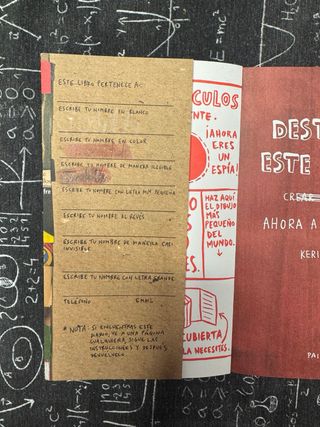 ESTE LIBRO PERTENECE A:
ESCRIBE TU NOMBRE EN BLANCO
ESCRIBE TU NOMBRE EN COLOR
ESCRIBE TU NOMBRE DE MANERA ILEGIBLE
ESCRIBE TU NOMBRE CON LETRA MUY PEQUEÑA
ESCRIBE TU NOMBRE AL REVÉS
ESCRIBE TU NOMBRE DE MANERA CASI
INVISIBLE
ESCRIBE TU NOMBRE CON LETRA GRANDE
TELÉFONO EMAIL
* NOTA: SI ENCUENTRAS ESTE
LIBRO, VE A UNA PÁGINA
CUALQUIERA, SIGUE LAS
INSTRUCCIONES Y DESPUÉS
DEVUÉLVELO.
CULOS
NTE.
¡AHORA
ERES
UN
ESPÍA!
HAZ AQUÍ
EL DIBUJO
MÁS
PEQUEÑO
DEL
MUNDO.
CUBIERTA
LA NECESITES.
DEST
ESTE
CREAR
AHORA A
KERI
PAI
E=mc²
2+2=4